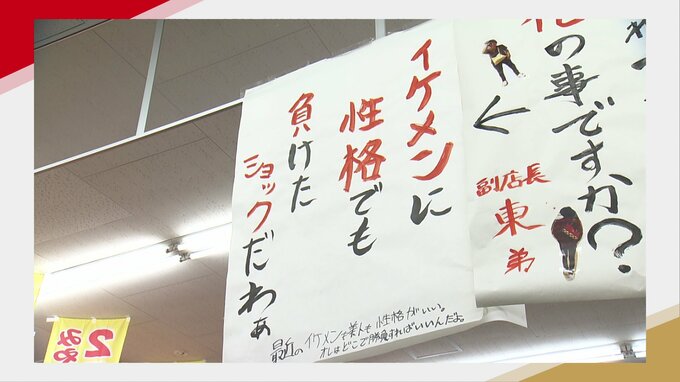 の事ですか?
←
副店長
東
弟
イケメンに
性格でも
負けた
ショックだわぁ
最近のイケメンも美人も性格がいい。
オレはどこで勝負すればいいんだよ。
2